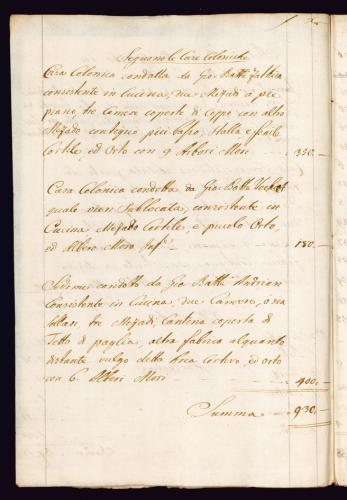 Seguono le Case Coloniche
Casa Colonica condotta da Gio: Batta
consistente in Cucina, due Mezadi à pie
piano, tre Camere coperte di Coppo con altro
Mezado contiguo più basso, Stalla e fenile
Cortile, ed Orto con 9 Alberi Mori 350.
Casa Colonica condotta da Gio: Batta
quale vien Sublocata, consistente in
Cucina, Mezado Cortile, e piccolo Orto,
ed Albero Moro 180.
condotto da Gio Batta Andrian
Consistente in Cucina, due Camere, ò sia
tre Mezadi, Cantina coperta di
Tetto di paglia, altra fabrica alquanto
distante vulgo detta Area Cortivo, ed orto
con 6. Alberi Mori
400.
Summa 930.